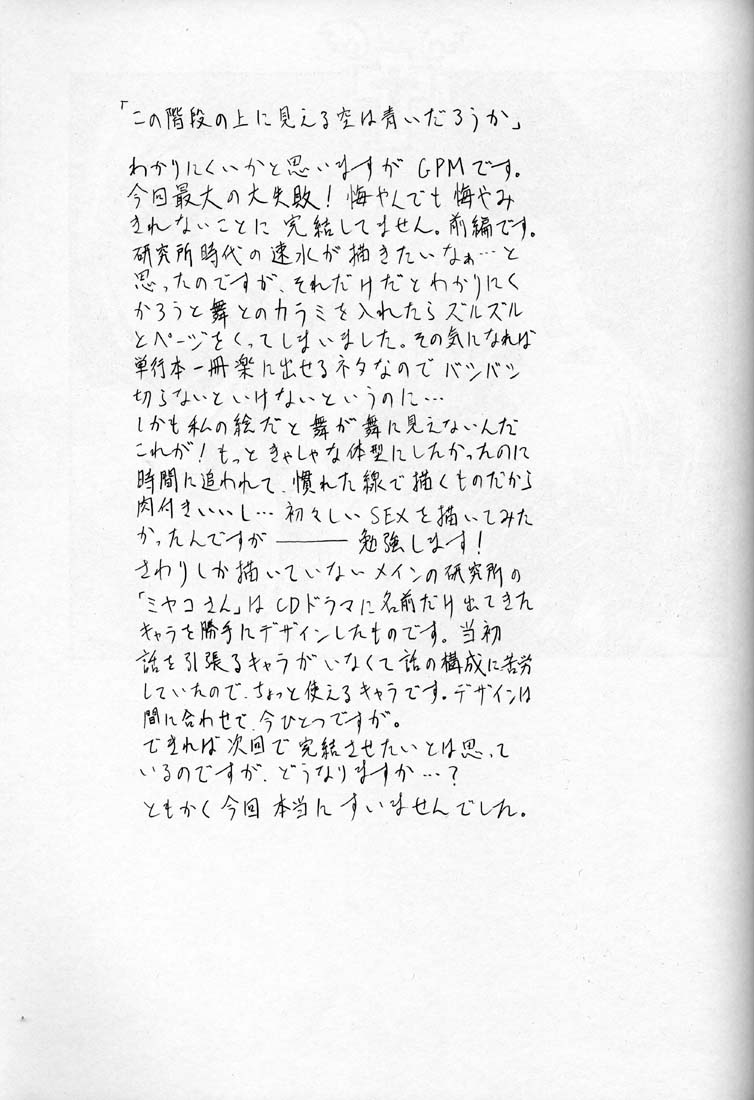 「この階段の上に見える空は青いだろうか」
わかりにくいかと思いますが GPMです。
今回最大の大失敗！悔やんでも悔やみ
きれないことに 完結してません。前編です。
研究所時代の速水が描きたいなぁ…と
思ったのですが、それだけだとわかりにく
かろうと舞とのカラミを入れたらズルズル
とページをくってしまいました。その気になれば
単行本一冊楽に出せるネタなのでバシバシ
切らないといけないというのに…
しかも私の絵だと舞が舞に見えないんだ
これが！もっときゃしゃな体型にしたかったのに
時間に追われて、慣れた線で描くものだから
肉付きいいし… 初々しいSEXを描いてみた
かったんですが――― 勉強します！
さわりしか描いていないメインの研究所の
「ミヤコさん」はCDドラマに名前だけ出てきた
キャラを勝手にデザインしたものです。当初
話を引張るキャラがいなくて話の構成に苦労
していたので、ちょっと使えるキャラです。デザインは
間に合わせで、今ひとつですが。
できれば次回で完結させたいとは思って
いるのですが、どうなりますか…？
ともかく今回本当にすいませんでした。